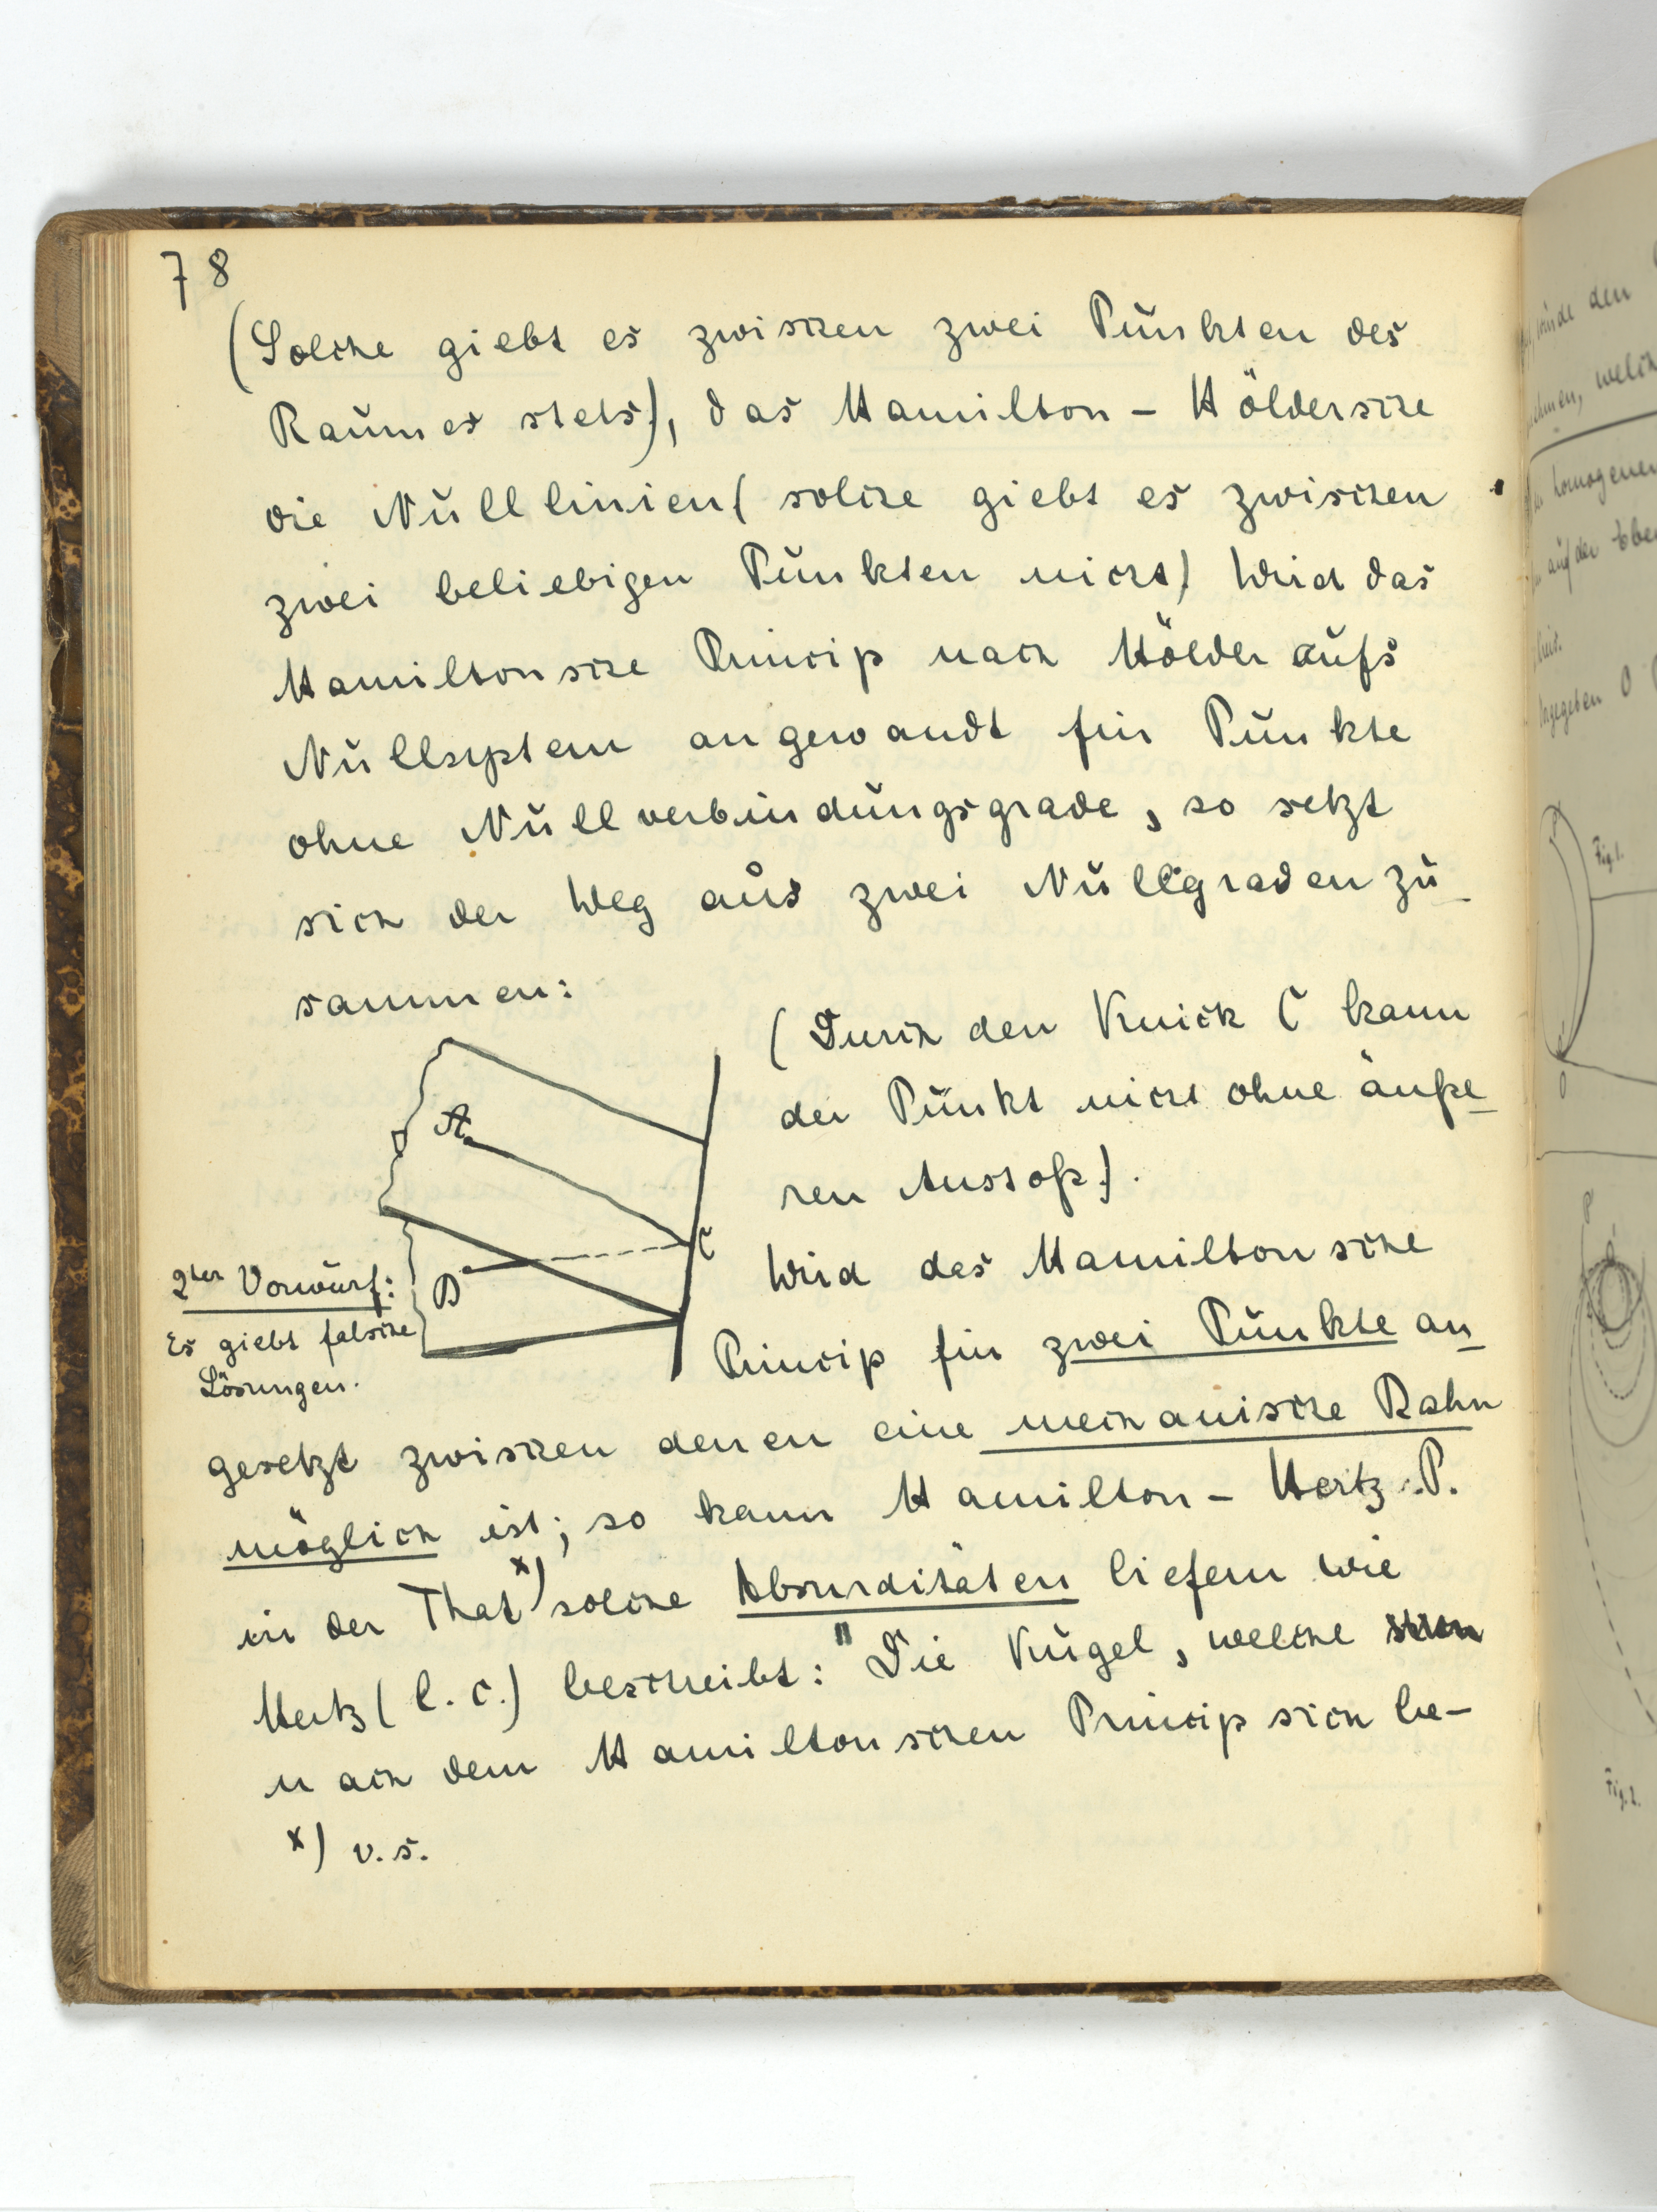 78
(Solche giebt es zwischen zwei Punkten des
Raumes stets), das Hamilton - Höldersche
die Nulllinien (solche giebt es zwischen
zwei beliebigen Punkten nicht) Wird das
Hamiltonsche Princip nach Hölder aufs
Nullsystem angewandt für Punkte
ohne Nullverbindungsgrade, so setzt
sich der Weg aus zwei Nullgraden zu-
sammen:
(Durch den Knick C kann
der Punkt nicht ohne äuße-
ren Anstoß).
A
C
B
2ter Vorwurf:
Es giebt falsche
Lösungen.
Wird das Hamiltonsche
Princip für zwei Punkte an-
gesetzt zwischen denen eine mechanische Bahn
möglich ist; so kann Hamilton - Hertz. P.
in der That x) solche Absurditäten liefern wie
Hertz (l. c.) beschreibt: "Die Kugel, welche
nach dem Hamiltonschen Princip sich be-
x) v. s.
Fig. 1.
O
P
Fig. 2.